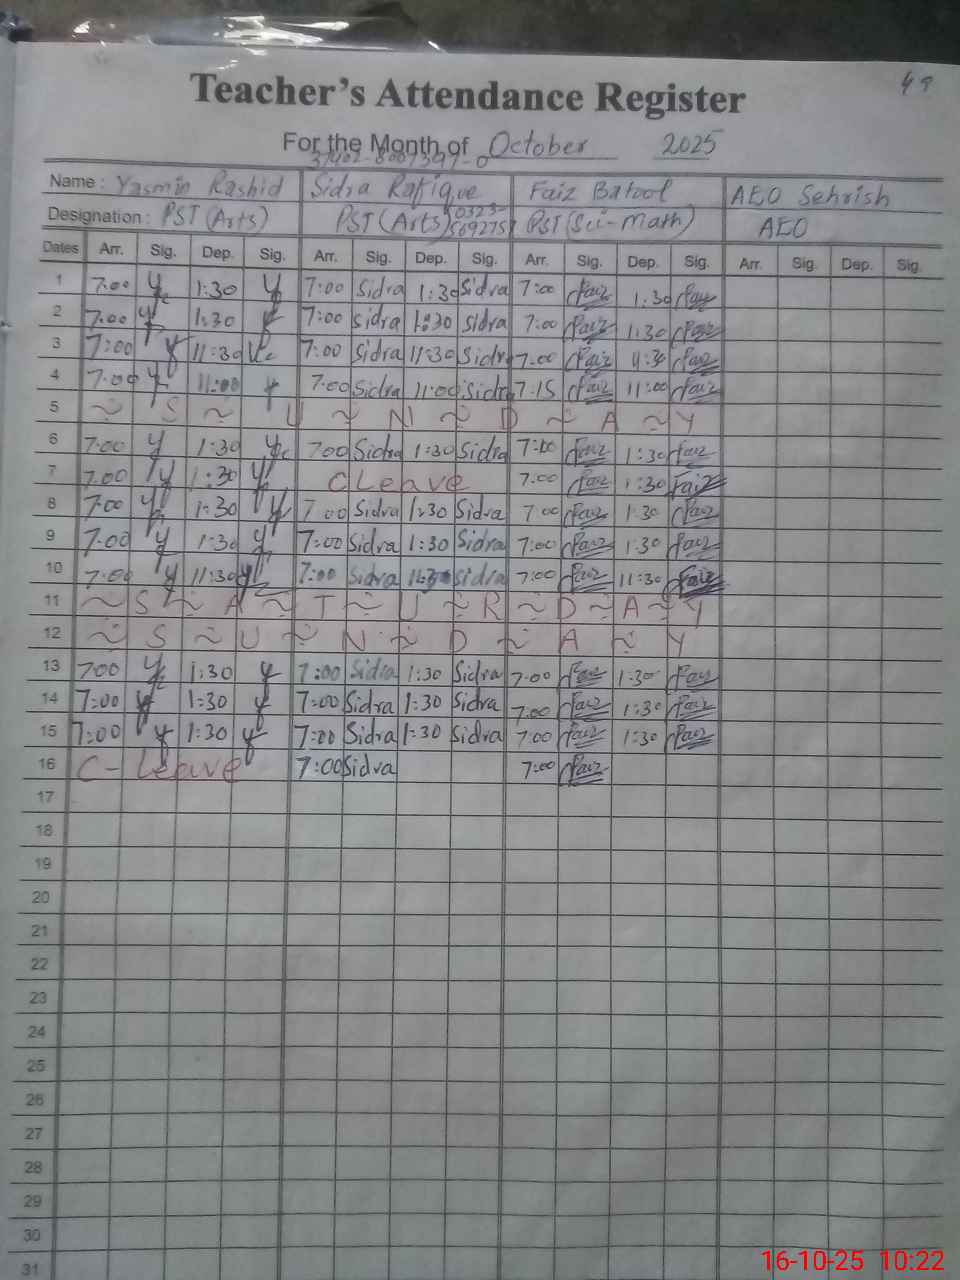 49
Teacher's Attendance Register
For the Month of October 2025
Name: Yasmin Rashid Sidra Rafique Faiz Batool AEO Sehrish
Designation: PST (Arts) PST (Arts) 0323- PST (Sci-math) AEO
Dates Arr. Sig. Dep. Sig. Arr. Sig. Dep. Sig. Arr. Sig. Dep. Sig. Arr. Sig. Dep. Sig.
1 7:00 1:30 7:00 Sidra 1:30 Sidra 7:00 Faiz 1:30 Faiz
2 7:00 1:30 7:00 sidra 1:30 sidra 7:00 Faiz 1:30 Faiz
3 7:00 11:30 7:00 Sidra 11:30 Sidra 7:00 Faiz 11:30 Faiz
4 7:00 11:00 7:00 Sidra 11:00 Sidra 7:15 Faiz 11:00 Faiz
5 ~ S ~ U ~ N ~ D ~ A ~ Y
6 7:00 y 1:30 700 Sidra 1:30 Sidra 7:00 Faiz 1:30 Faiz
7 7:00 y 1:30 y C Leave 7:00 Faiz 1:30 Faiz
8 7:00 1:30 y 7 00 Sidra 1:30 Sidra 7 00 Faiz 1:30 Faiz
9 7:00 y 1:30 y 7:00 Sidra 1:30 Sidra 7:00 Faiz 1:30 Faiz
10 7:00 y 11:30 y 7:00 Sidra 11:30 sidra 7:00 Faiz 11:30 Faiz
11 ~ S ~ A ~ T ~ U ~ R ~ D ~ A ~ Y
12 ~ S ~ U ~ N ~ D ~ A ~ Y
13 700 y 1:30 y 7:00 Sidra 1:30 Sidra 7:00 Faiz 1:30 Faiz
14 7:00 y 1:30 y 7:00 Sidra 1:30 Sidra 7:00 Faiz 1:30 Faiz
15 7:00 y 1:30 y 7:00 Sidra 1:30 Sidra 7:00 Faiz 1:30 Faiz
16 C- Leave 7:00 Sidra 7:00 Faiz
17
18
19
20
21
22
23
24
25
26
27
28
29
30
31
16-10-25 10:22